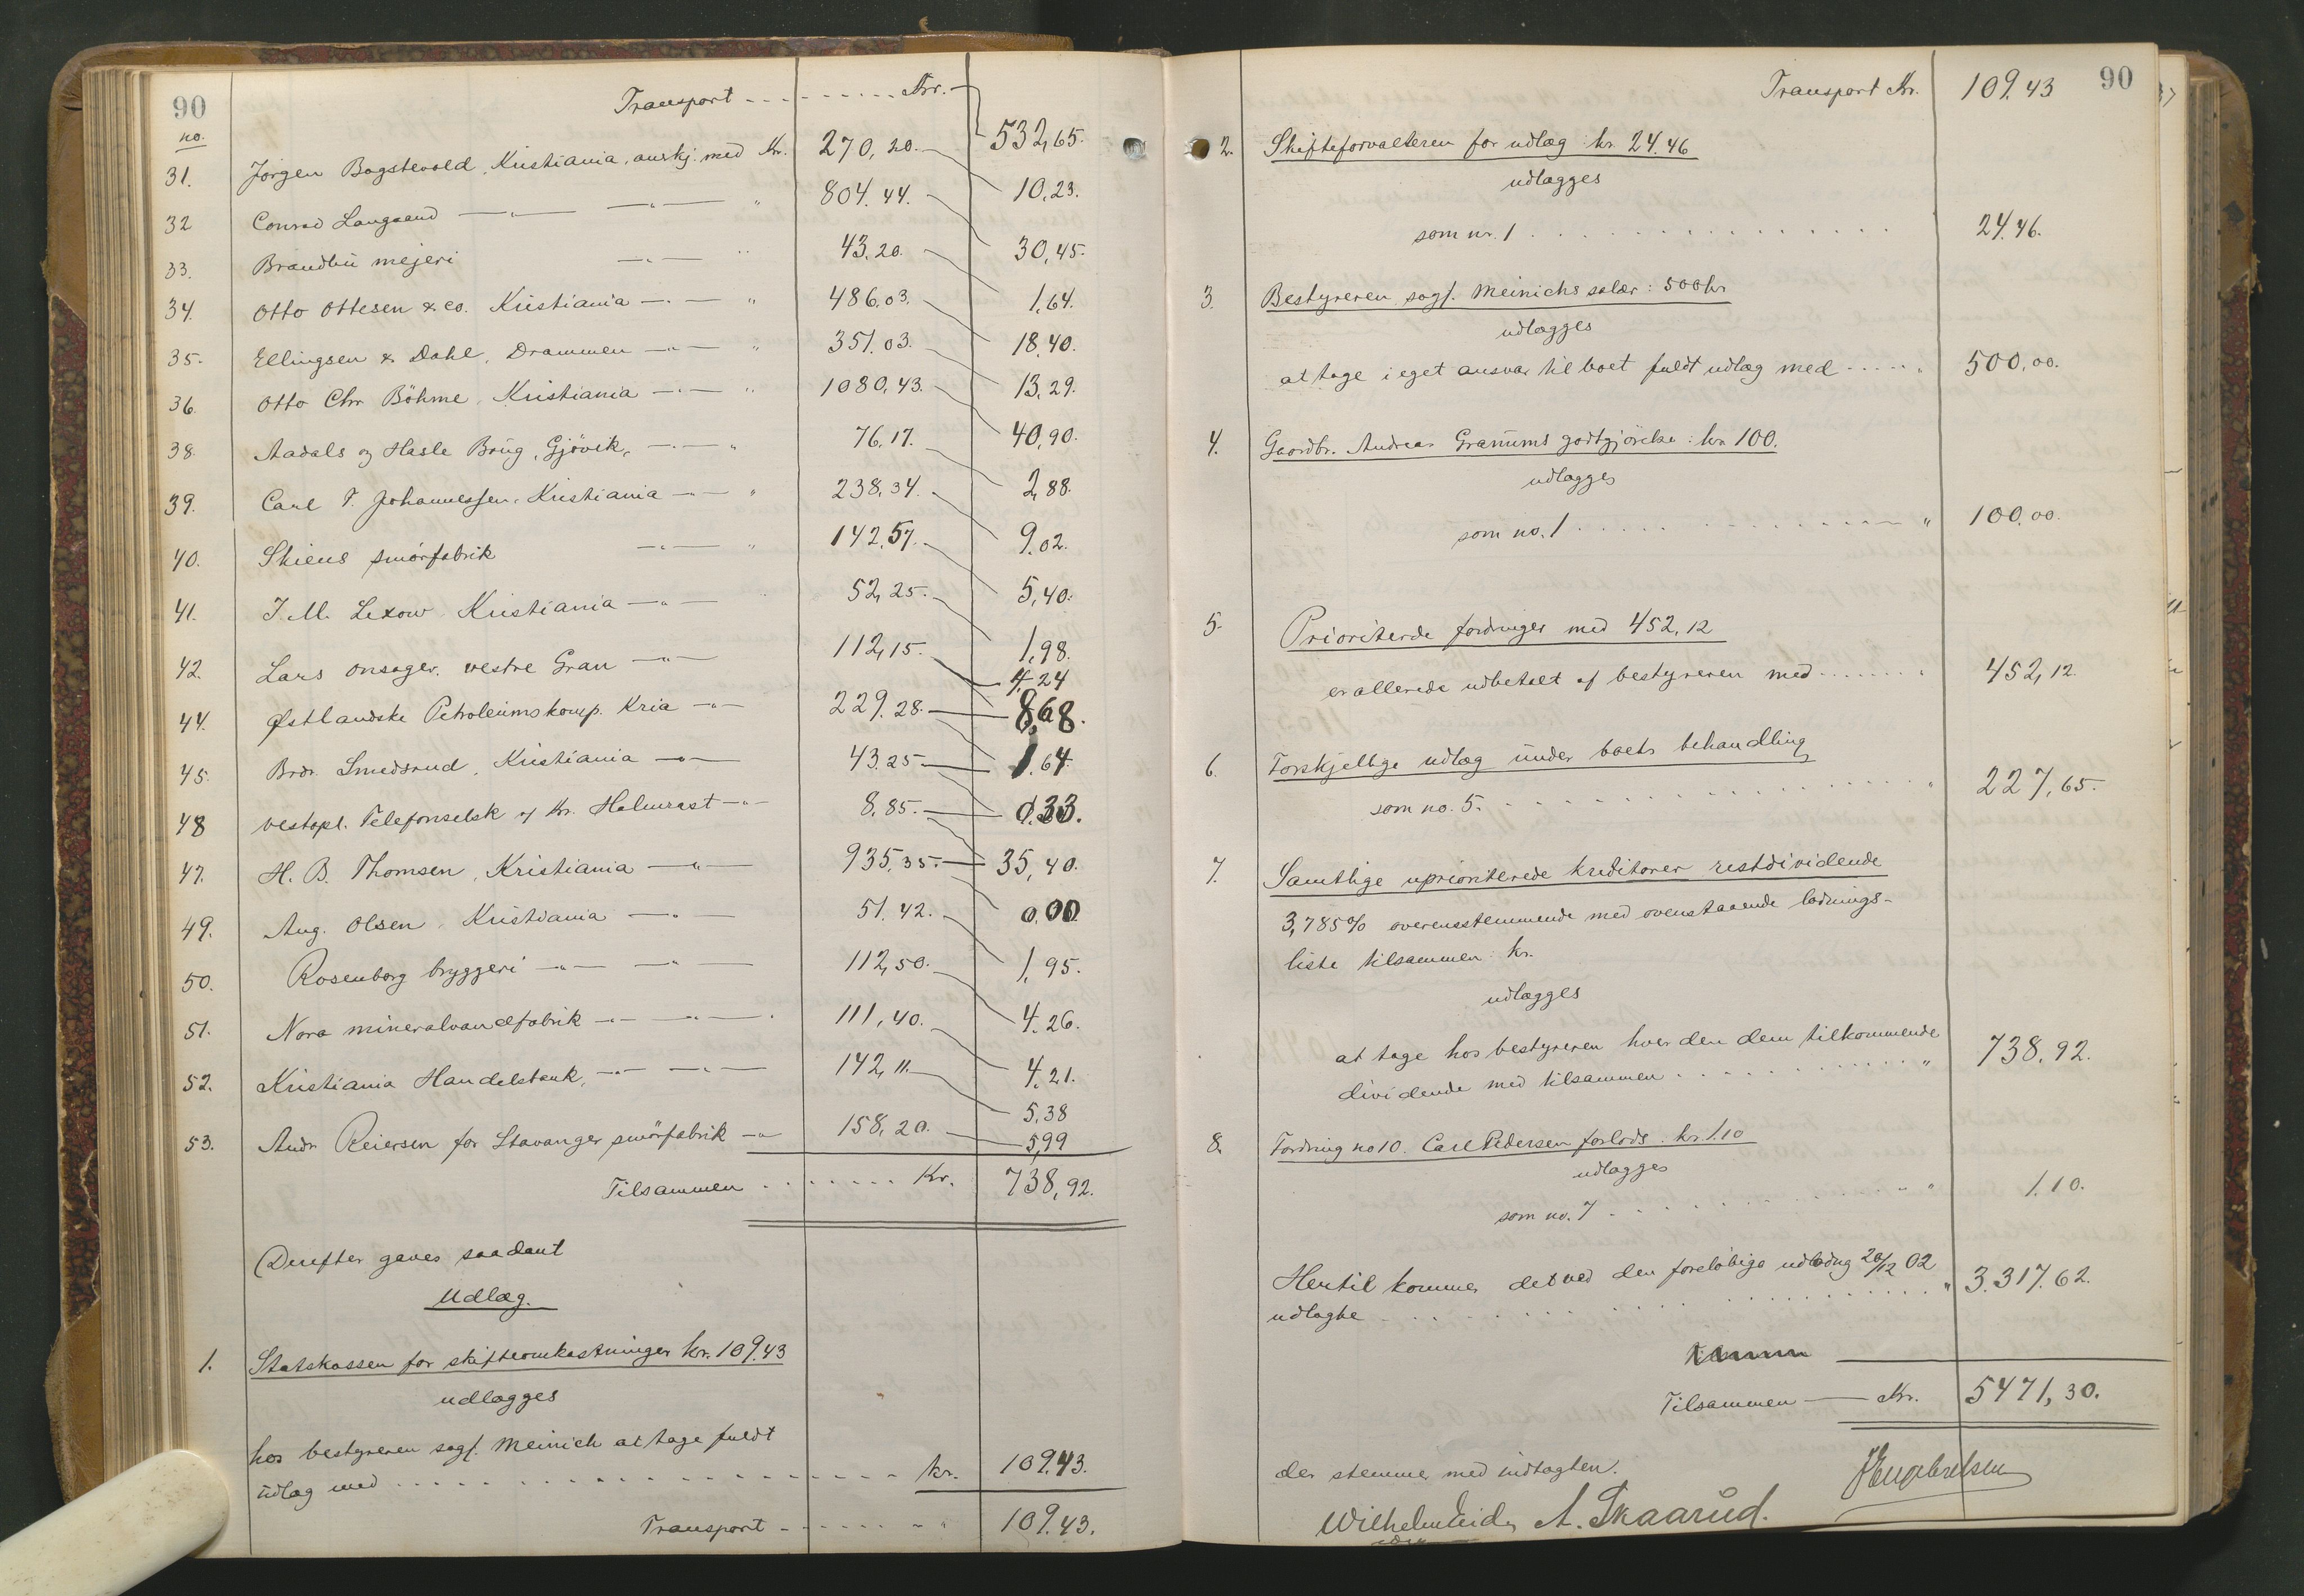 90
Transport - - - - - - - - - Kr.
532,65.
no.
31. Jörgen Bagstevold, Kristiania, anskj. med Kr. 270,20. 10,23.
32 Conrad Langaard —"— —"— " 804.44. 30,45.
33. Brandbu mejeri —"— " 43.20. 1,64.
34. Otto Ottesen & co. Kristiania —"— " 486.03. 18,40.
35. Ellingsen & Dahl, Drammen —"— " 351.03. 13,29.
36. Otto Chr Böhme, Kristiania —"— " 1080,43. 40,90.
38. Aadals og Hasle Brug, Gjövik, —"— " 76.17. 2,88.
39. Carl T. Johannessen, Kristiania —"— " 238,34. 9.02.
40. Skiens smörfabrik —"— " 142.57. 5,40.
41. J. M. Lexow Kristiania —"— " 52,25. 1,98.
42. Lars Onsager, vestre Gran —"— 112,15. 4,24
44. Östlandske Petroleumskomp. Kria —"— 229.28. 8,68.
45. Brdr. Smedsrud, Kristiania —"— 43.25 1.64.
48 Vestopl. Telefonselsk af Kr. Halmrast —"— 8,85. 0,33.
47. H. B. Thomsen, Kristiania —"— 935,35. 35,40.
49. Aug. Olsen, Kristiania —"— 51.42. 0,00
50. Rosenborg bryggeri —"— —"— 112,50. 1,95.
51. Nora mineralvandfabrik —"— —"— 111,40. 4.26.
52. Kristiania Handelsbank, —"— —"— 142,11. 4.21.
5,38
53. Andr Reiersen for Stavanger smörfabrik —"— 158,20. 5,99
Tilsammen . . . . . . . Kr. 738,92.
Derefter gaves saadant
Udlæg.
1. Statskassen for skifteomkostninger kr. 109.43
udlægges
hos bestyreren sagf. Meinich at tage fuldt
udlæg med . . . . . . . . . . . . . kr. 109.43.
Transport - - - - - - - " 109.43.
90
Transport Kr. 109.43
2. Skifteforvalteren for udlæg kr. 24.46
udlægges
som nr. 1 . . . . . . . . . . . . . . 24.46.
3. Bestyreren sagf. Meinichs salær: 500 kr
udlægges
at tage i eget ansvar til boet fuldt udlæg med . . . . " 500,00.
4. Gaardbr. Andreas Granums godtgjörelse: kr 100.
udlægges
som no. 1 . . . . . . . . . . . . . " 100,00.
5. Prioriterede fordringer med 452,12
er allerede udbetalt af bestyreren med . . . . . . " 452,12.
6. Forskjellige udlæg under boets behandling
som no. 5. . . . . . . . . . . . . . . . " 227,65.
7. Samtlige uprioriterede kreditorer restdividende
3,785% overensstemmende med ovenstaaende lodnings-
liste tilsammen kr.
udlægges
at tage hos bestyreren hver den dem tilkommende
dividende med tilsammen . . . . . . . . . . . " 738,92.
8. Fordring no 10. Carl Pedersen forlods. kr. 1.10
udlægges
som no. 7 . . . . . . . . . . . . . " 1.10.
Hertil kommer det ved den foreløbige udlodng 20/12 02
udlagte . . . . . . . . . . . . . . . . . " 3.317.62.
Tilsammen — Kr. 5471,30.
der stemmer med indtægten.
JEngebretsen
Wilhelm A. Skaarud.